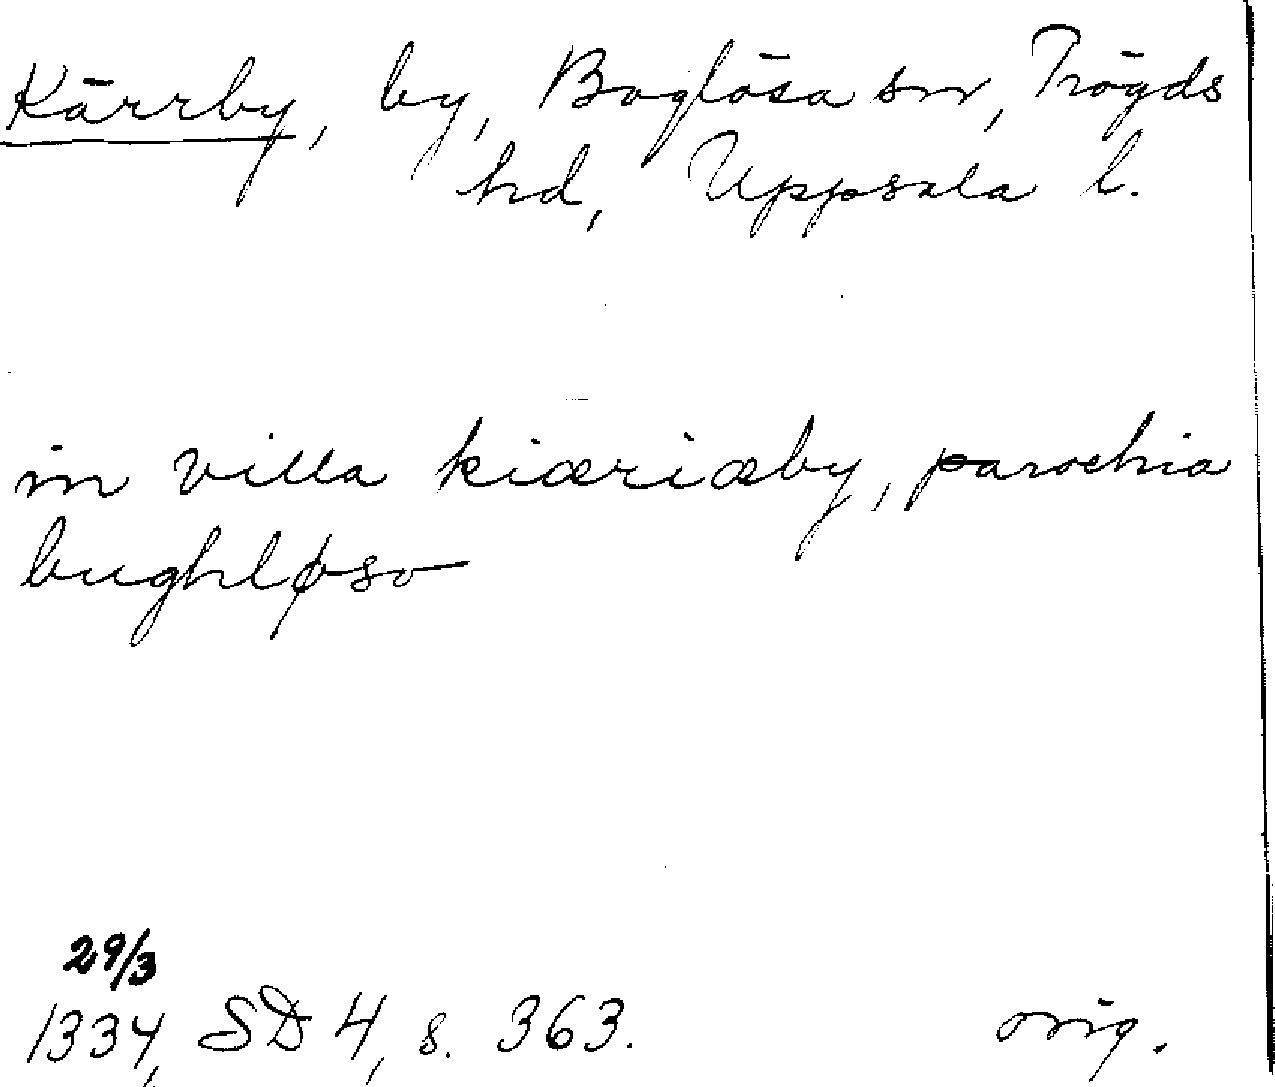 Kärrby, by, Boglösa sn, Trögds
hd, Uppsala l.
in villa kiæriæby, parochia
bughløso
29/3
1334, SD 4, s. 363.
orig.